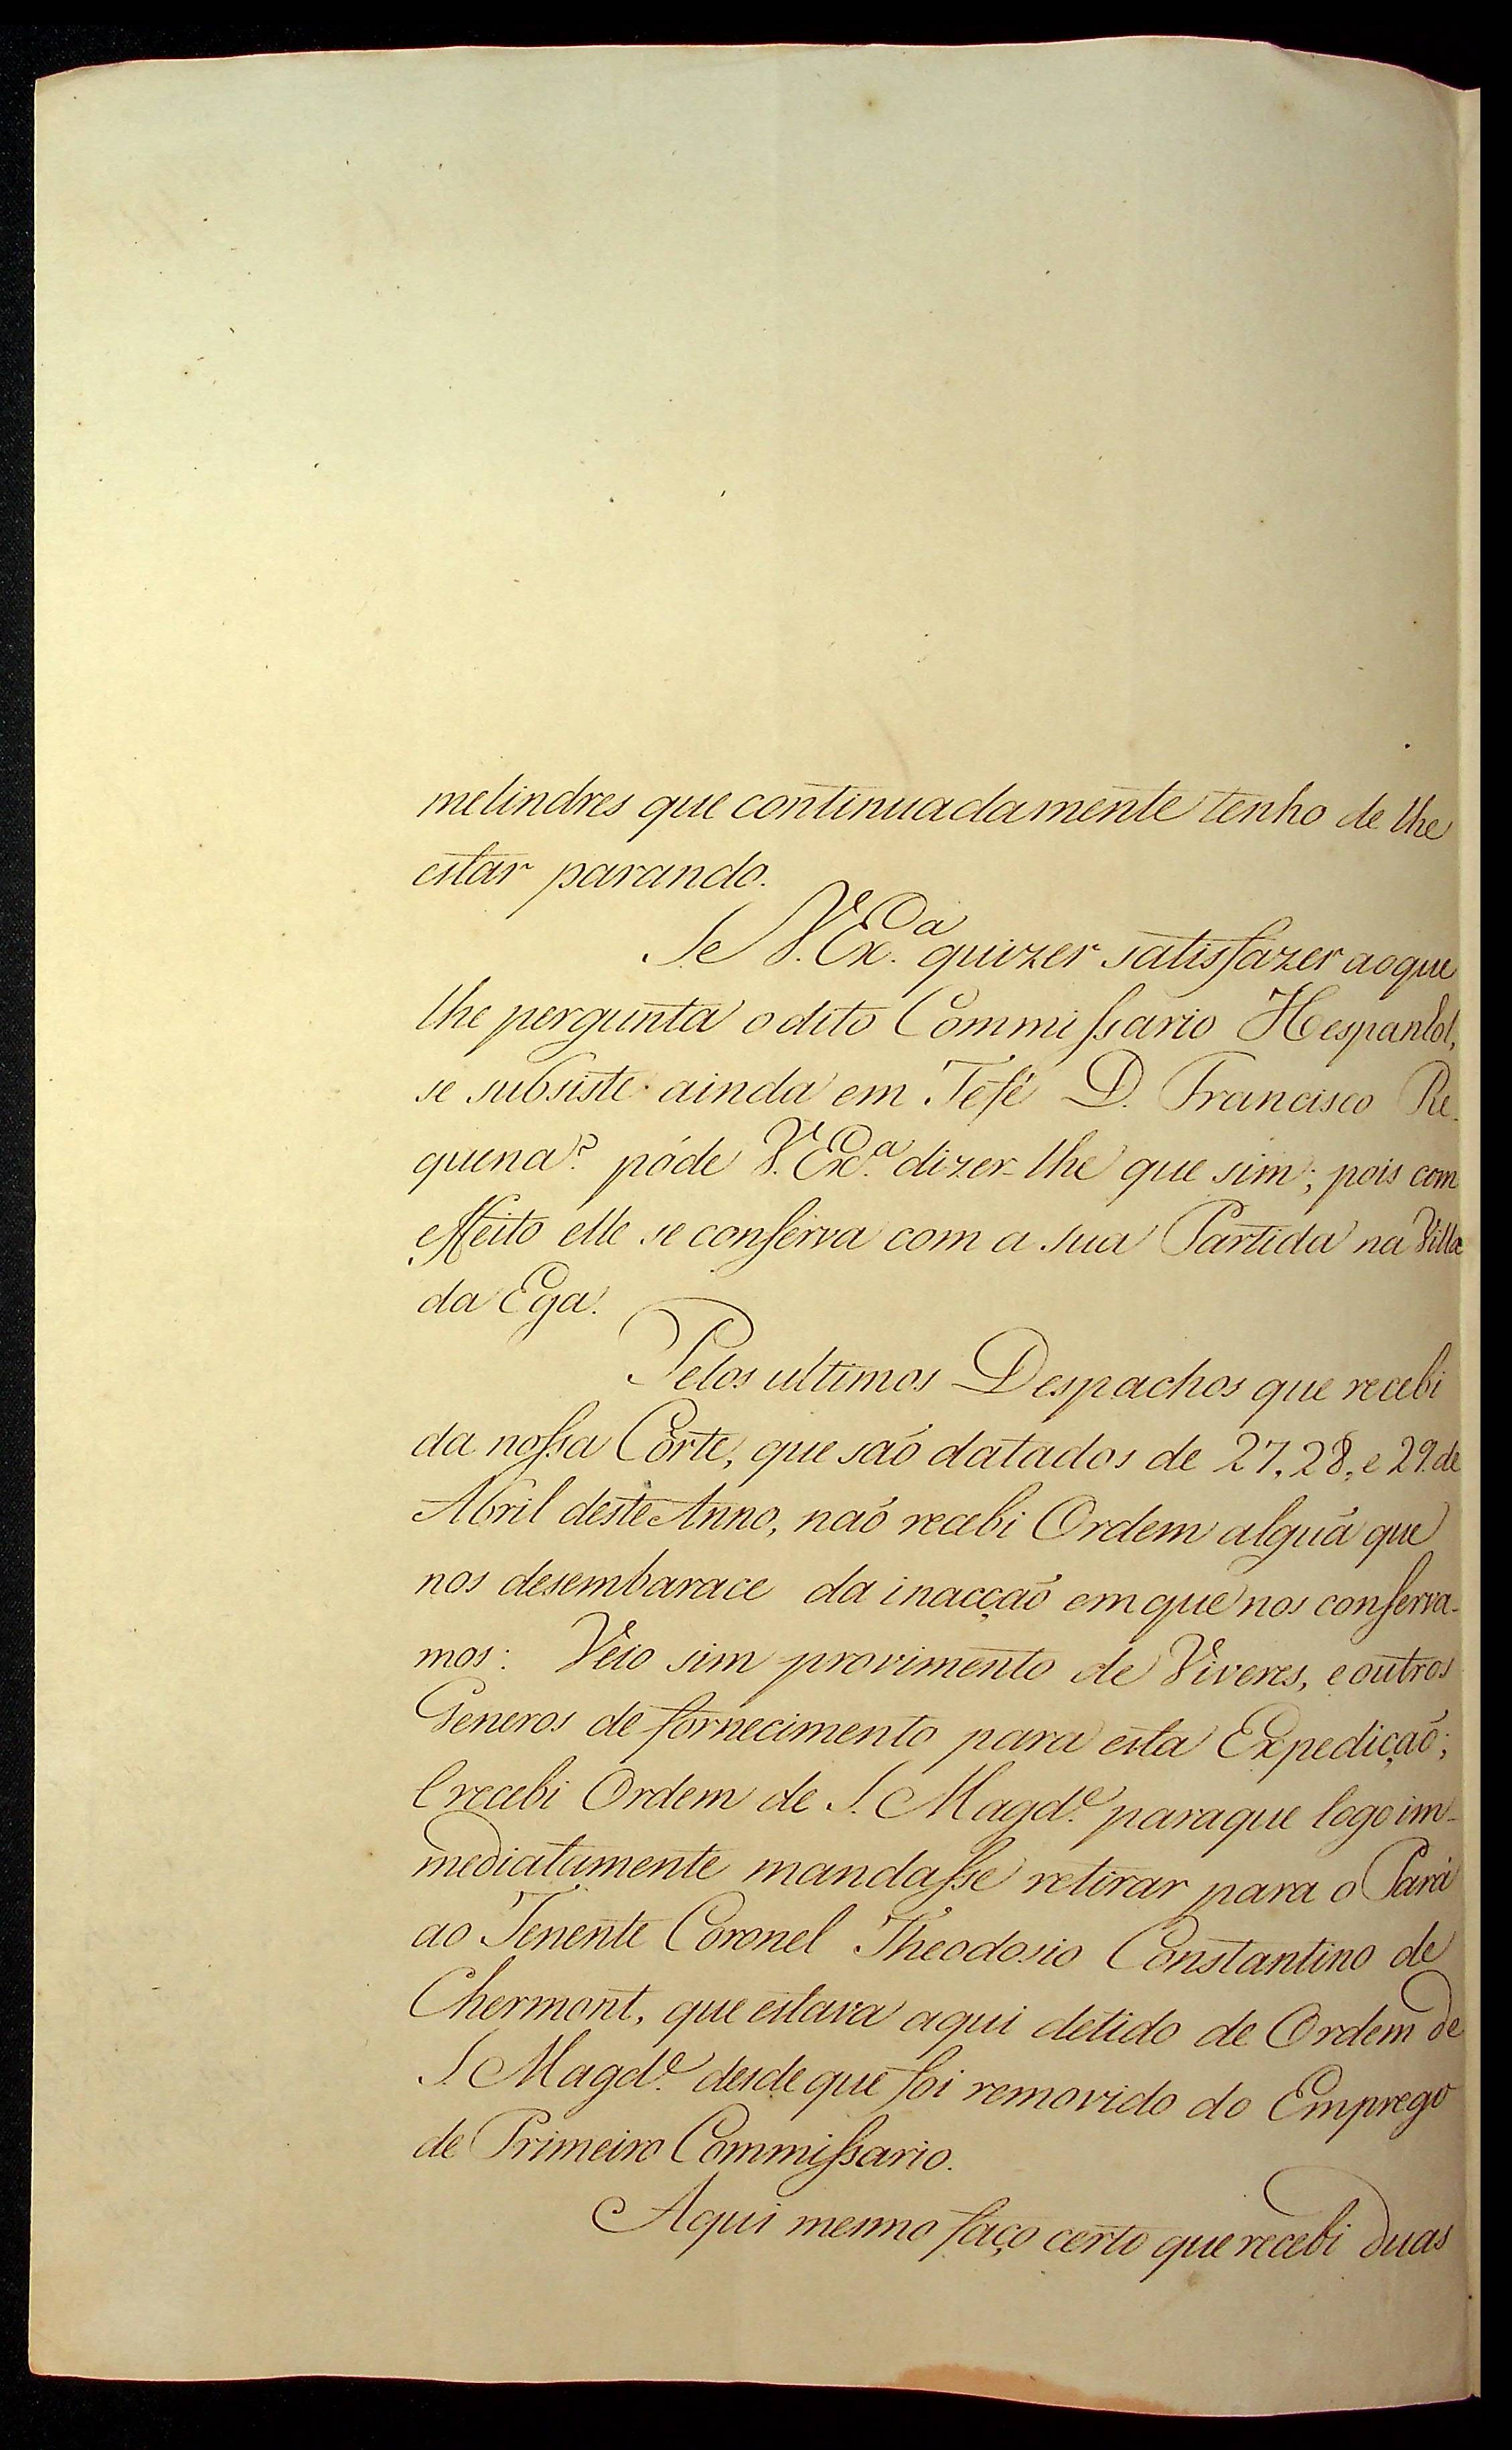 melindres que continuadamente tenho de lhe
estar parando.
Se V. Ex.ª quizer satisfazer aoque
lhe pergunta o dito Commissario Hespanhol,
se subsiste ainda em Tefé D. Francisco Re-
quena? póde V. Ex.ª dizer-lhe que sim; pois com
effeito elle se conserva com a sua Partida na Villa
da Ega.
Pelos ultimos Despachos que recebi
da nossa Corte, que saõ datados de 27, 28, e 29. de
Abril deste Anno, naõ recebi Ordem alguã que
nos desembarace da inacçaõ emque nos conserva-
mos: Veio sim provimento de Viveres, e outros
Generos de fornecimento para esta Expediçaõ;
E recebi Ordem de S. Magd.e paraque logo im-
mediatamente mandasse retirar para o Pará
ao Tenente Coronel Theodosio Constantino de
Chermont, que estava aqui detido de Ordem de
S. Magd.e desde que foi removido do Emprego
de Primeiro Commissario.
Aqui mesmo faço certo que recebi duas